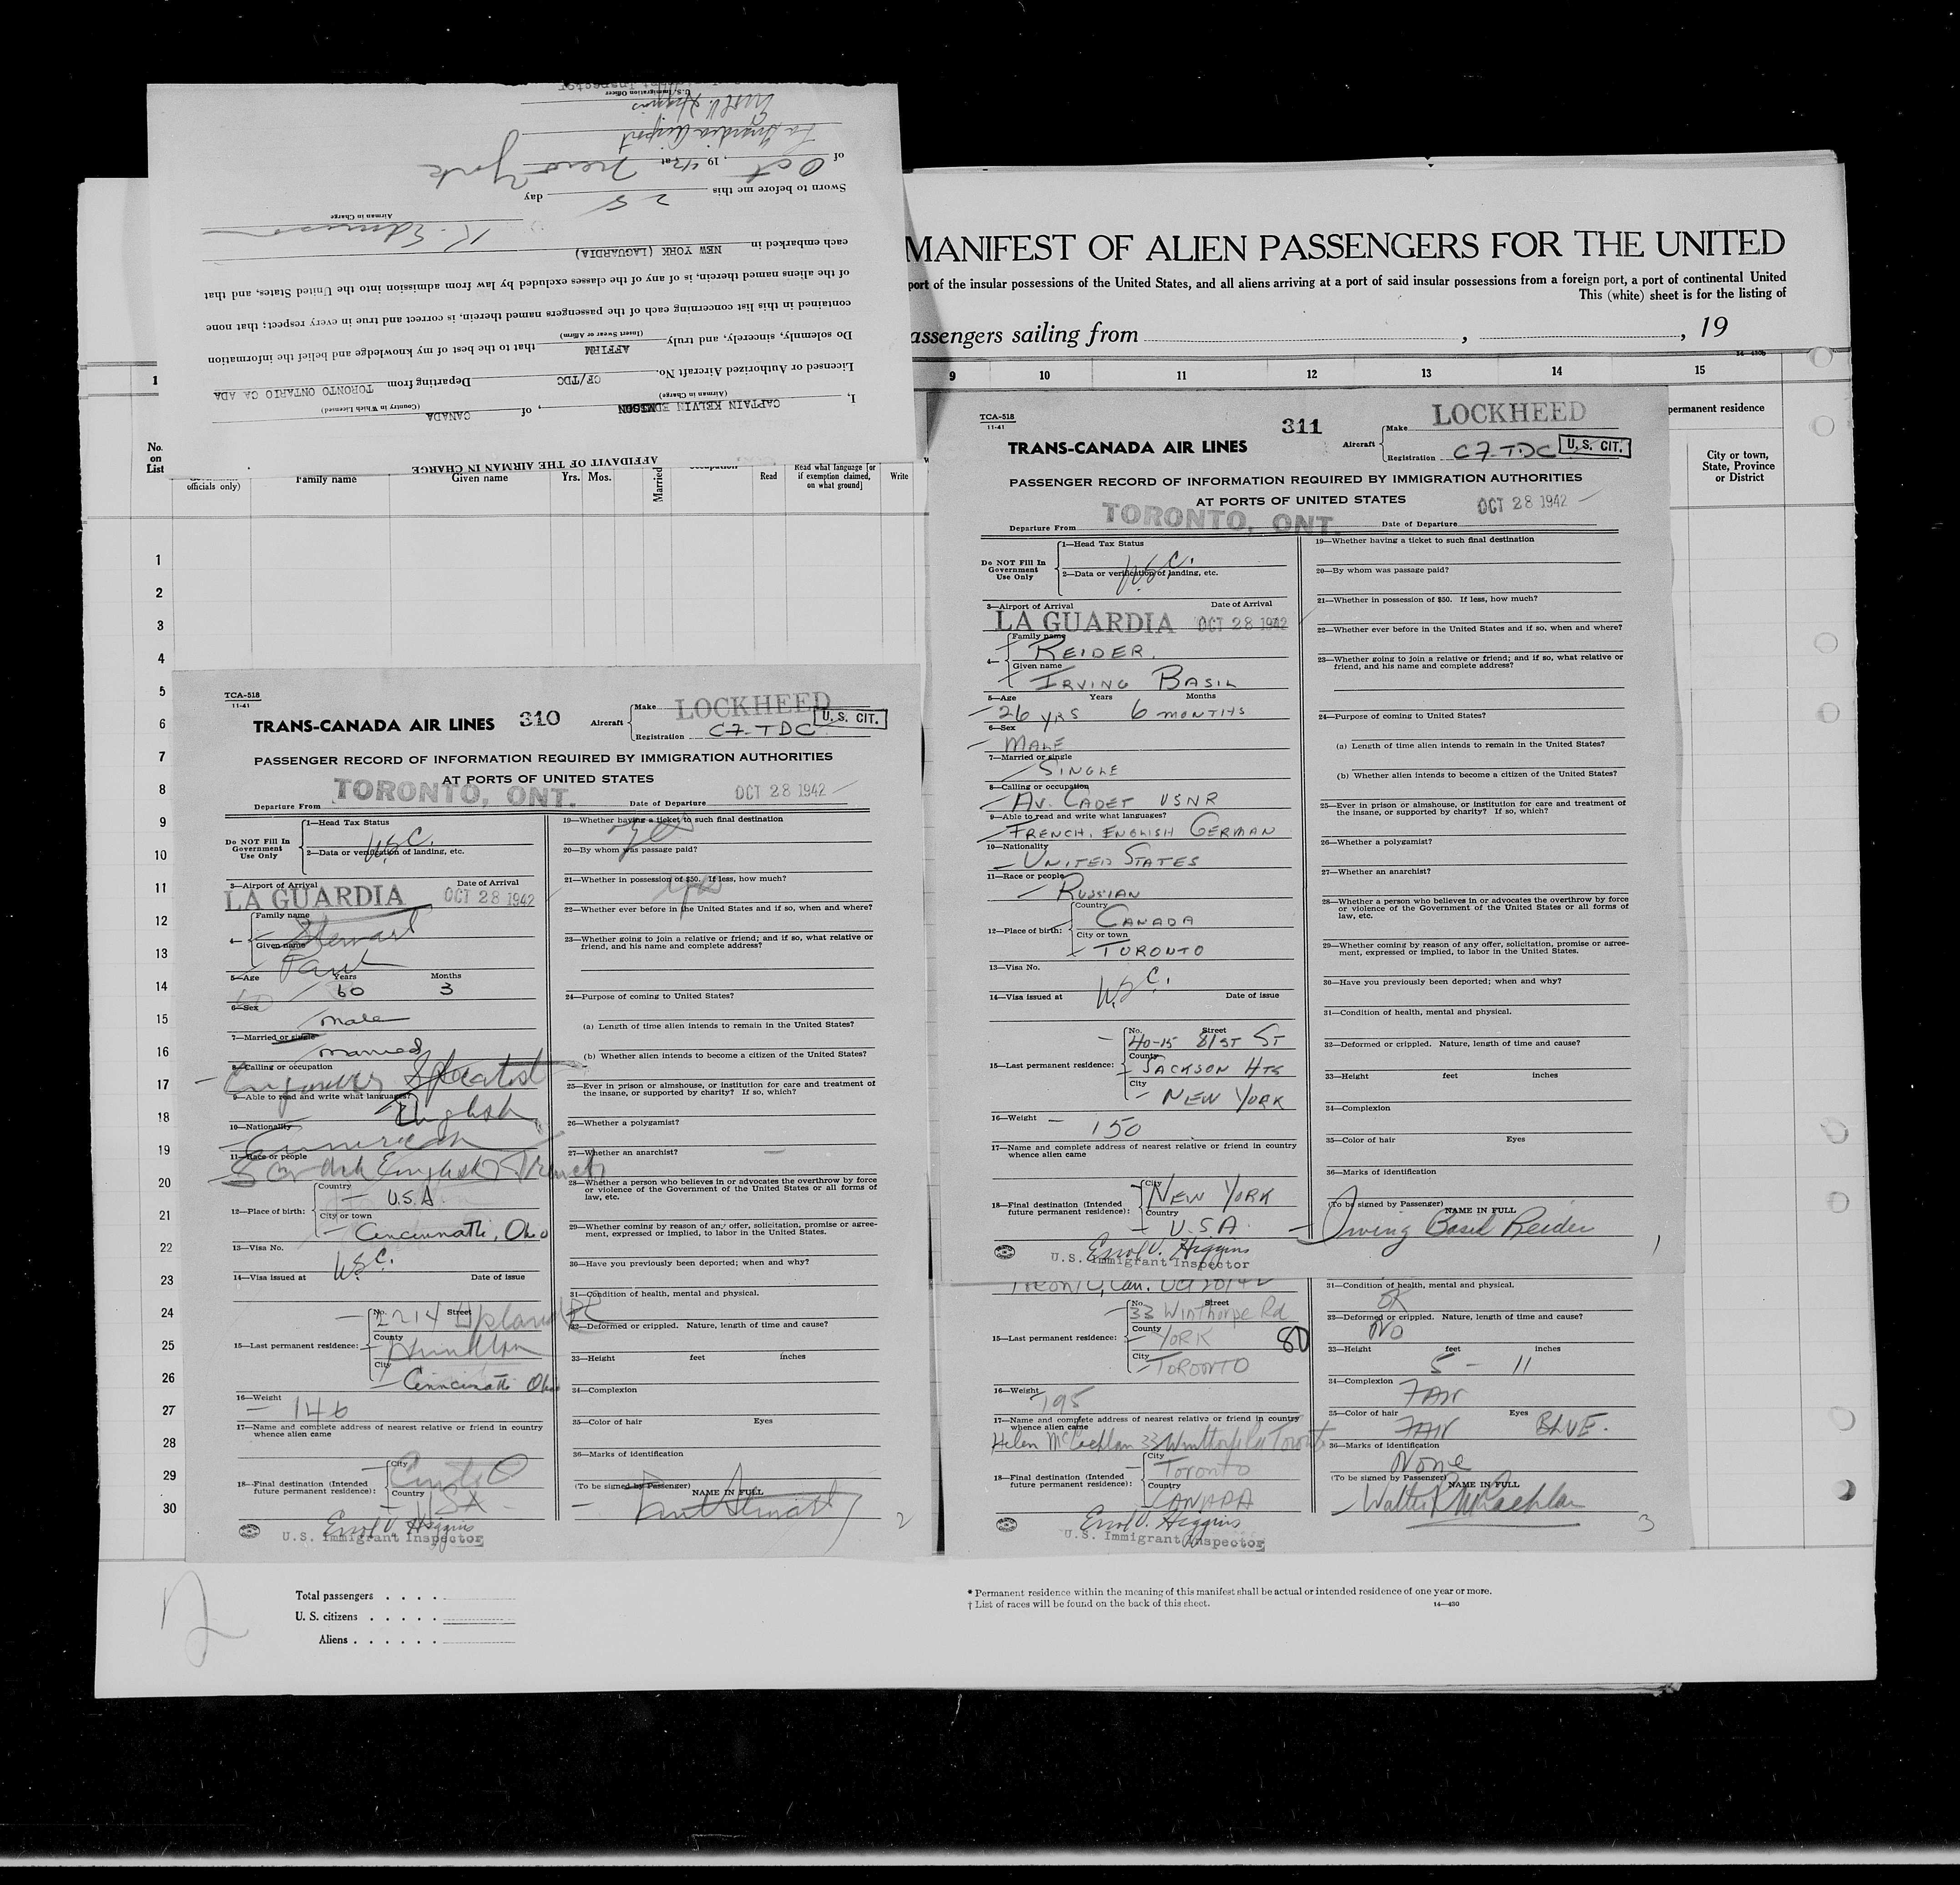 AFFIDAVIT OF THE AIRMAN IN CHARGE
I, CAPTAIN KELVIN EDMISON, of CANADA
(Airman in Charge) (Country in Which Licensed)
Licensed or Authorized Aircraft No. CF/TDC Departing from TORONTO ONTARIO CA ADA
Do solemnly, sincerely, and truly AFFIRM that to the best of my knowledge and belief the information
(Insert Swear or Affirm)
contained in this list concerning each of the passengers named therein, is correct and true in every respect; that none
of the aliens named therein, is of any of the classes excluded by law from admission into the United States, and that
each embarked in NEW YORK (LAGUARDIA)
Airman in Charge
Sworn to before me this 28 day
of Oct, 1942 at New York
La Guardia Airport
Errol V. Higgins
U.S. Immigration Officer
MANIFEST OF ALIEN PASSENGERS FOR THE UNITED
port of the insular possessions of the United States, and all aliens arriving at a port of said insular possessions from a foreign port, a port of continental United
This (white) sheet is for the listing of
assengers sailing from , , 19
14—430b
1 9 10 11 12 13 14 15
permanent residence
No. on List
officials only) Family name Given name Yrs. Mos. Married Read Read what language [or if exemption claimed, on what ground] Write
City or town, State, Province or District
1
2
3
4
5
6
7
8
9
10
11
12
13
14
15
16
17
18
19
20
21
22
23
24
25
26
27
28
29
30
TCA-518
11-41
TRANS-CANADA AIR LINES 310 Aircraft Make LOCKHEED
Registration CF-TDC U. S. CIT.
PASSENGER RECORD OF INFORMATION REQUIRED BY IMMIGRATION AUTHORITIES
AT PORTS OF UNITED STATES
Departure From TORONTO, ONT. Date of Departure OCT 28 1942
Do NOT Fill In Government Use Only
1—Head Tax Status
2—Data or verification of landing, etc.
U.S.C.
3—Airport of Arrival Date of Arrival
LA GUARDIA OCT 28 1942
4— Family name Stewart
Given name Paul
5—Age Years Months
60 3
6—Sex
male
7—Married or single
married
8—Calling or occupation
Engineer Specialist
9—Able to read and write what languages?
English
10—Nationality
American
11—Race or people
Scotch English French
12—Place of birth: Country U.S.A
City or town Cincinnatti, Ohio
13—Visa No.
U.S.C.
14—Visa issued at Date of issue
15—Last permanent residence: No. Street 2214 Upland Pl
County Hamilton
City Cinncinatti Ohio
16—Weight
146
17—Name and complete address of nearest relative or friend in country whence alien came
18—Final destination (Intended future permanent residence): City Cinti O
Country USA
Errol V. Higgins
U.S. Immigrant Inspector
19—Whether having a ticket to such final destination
20—By whom was passage paid?
21—Whether in possession of $50. If less, how much?
22—Whether ever before in the United States and if so, when and where?
23—Whether going to join a relative or friend; and if so, what relative or friend, and his name and complete address?
24—Purpose of coming to United States?
(a) Length of time alien intends to remain in the United States?
(b) Whether alien intends to become a citizen of the United States?
25—Ever in prison or almshouse, or institution for care and treatment of the insane, or supported by charity? If so, which?
26—Whether a polygamist?
27—Whether an anarchist?
28—Whether a person who believes in or advocates the overthrow by force or violence of the Government of the United States or all forms of law, etc.
29—Whether coming by reason of any offer, solicitation, promise or agreement, expressed or implied, to labor in the United States.
30—Have you previously been deported; when and why?
31—Condition of health, mental and physical.
32—Deformed or crippled. Nature, length of time and cause?
33—Height feet inches
34—Complexion
35—Color of hair Eyes
36—Marks of identification
(To be signed by Passenger) NAME IN FULL
Paul Stewart
2
TCA-518
11-41
TRANS-CANADA AIR LINES 311 Aircraft Make LOCKHEED
Registration CF-TDC U. S. CIT.
PASSENGER RECORD OF INFORMATION REQUIRED BY IMMIGRATION AUTHORITIES
AT PORTS OF UNITED STATES
Departure From TORONTO, ONT. Date of Departure OCT 28 1942
Do NOT Fill In Government Use Only
1—Head Tax Status
2—Data or verification of landing, etc.
U.S.C.
3—Airport of Arrival Date of Arrival
LA GUARDIA OCT 28 1942
4— Family name REIDER.
Given name IRVING BASIL
5—Age Years Months
26 YRS 6 MONTHS
6—Sex
MALE
7—Married or single
SINGLE
8—Calling or occupation
AV. CADET USNR
9—Able to read and write what languages?
FRENCH, ENGLISH GERMAN
10—Nationality
UNITED STATES
11—Race or people
RUSSIAN
12—Place of birth: Country CANADA
City or town TORONTO
13—Visa No.
U.S.C.
14—Visa issued at Date of issue
15—Last permanent residence: No. Street 40-15 81ST ST
County JACKSON HTS
City NEW YORK
16—Weight
150
17—Name and complete address of nearest relative or friend in country whence alien came
18—Final destination (Intended future permanent residence): City NEW YORK
Country U.S.A.
Errol V. Higgins
U.S. Immigrant Inspector
19—Whether having a ticket to such final destination
20—By whom was passage paid?
21—Whether in possession of $50. If less, how much?
22—Whether ever before in the United States and if so, when and where?
23—Whether going to join a relative or friend; and if so, what relative or friend, and his name and complete address?
24—Purpose of coming to United States?
(a) Length of time alien intends to remain in the United States?
(b) Whether alien intends to become a citizen of the United States?
25—Ever in prison or almshouse, or institution for care and treatment of the insane, or supported by charity? If so, which?
26—Whether a polygamist?
27—Whether an anarchist?
28—Whether a person who believes in or advocates the overthrow by force or violence of the Government of the United States or all forms of law, etc.
29—Whether coming by reason of any offer, solicitation, promise or agreement, expressed or implied, to labor in the United States.
30—Have you previously been deported; when and why?
31—Condition of health, mental and physical.
32—Deformed or crippled. Nature, length of time and cause?
33—Height feet inches
34—Complexion
35—Color of hair Eyes
36—Marks of identification
(To be signed by Passenger) NAME IN FULL
Irving Basil Reider
1
15—Last permanent residence: No. Street 33 Winthorpe Rd
County YORK 80
City TORONTO
16—Weight
195
17—Name and complete address of nearest relative or friend in country whence alien came
Helen McLachlan 33 Winthorpe Rd Toronto
18—Final destination (Intended future permanent residence): City Toronto
Country CANADA
Errol V. Higgins
U.S. Immigrant Inspector
31—Condition of health, mental and physical.
OK
32—Deformed or crippled. Nature, length of time and cause?
NO
33—Height feet inches
5 - 11
34—Complexion
FAIR
35—Color of hair Eyes
FAIR BLUE.
36—Marks of identification
None
(To be signed by Passenger) NAME IN FULL
Walter McLachlan
3
2
Total passengers . . . .
U. S. citizens . . . . .
Aliens . . . . . .
* Permanent residence within the meaning of this manifest shall be actual or intended residence of one year or more.
† List of races will be found on the back of this sheet. 14—430